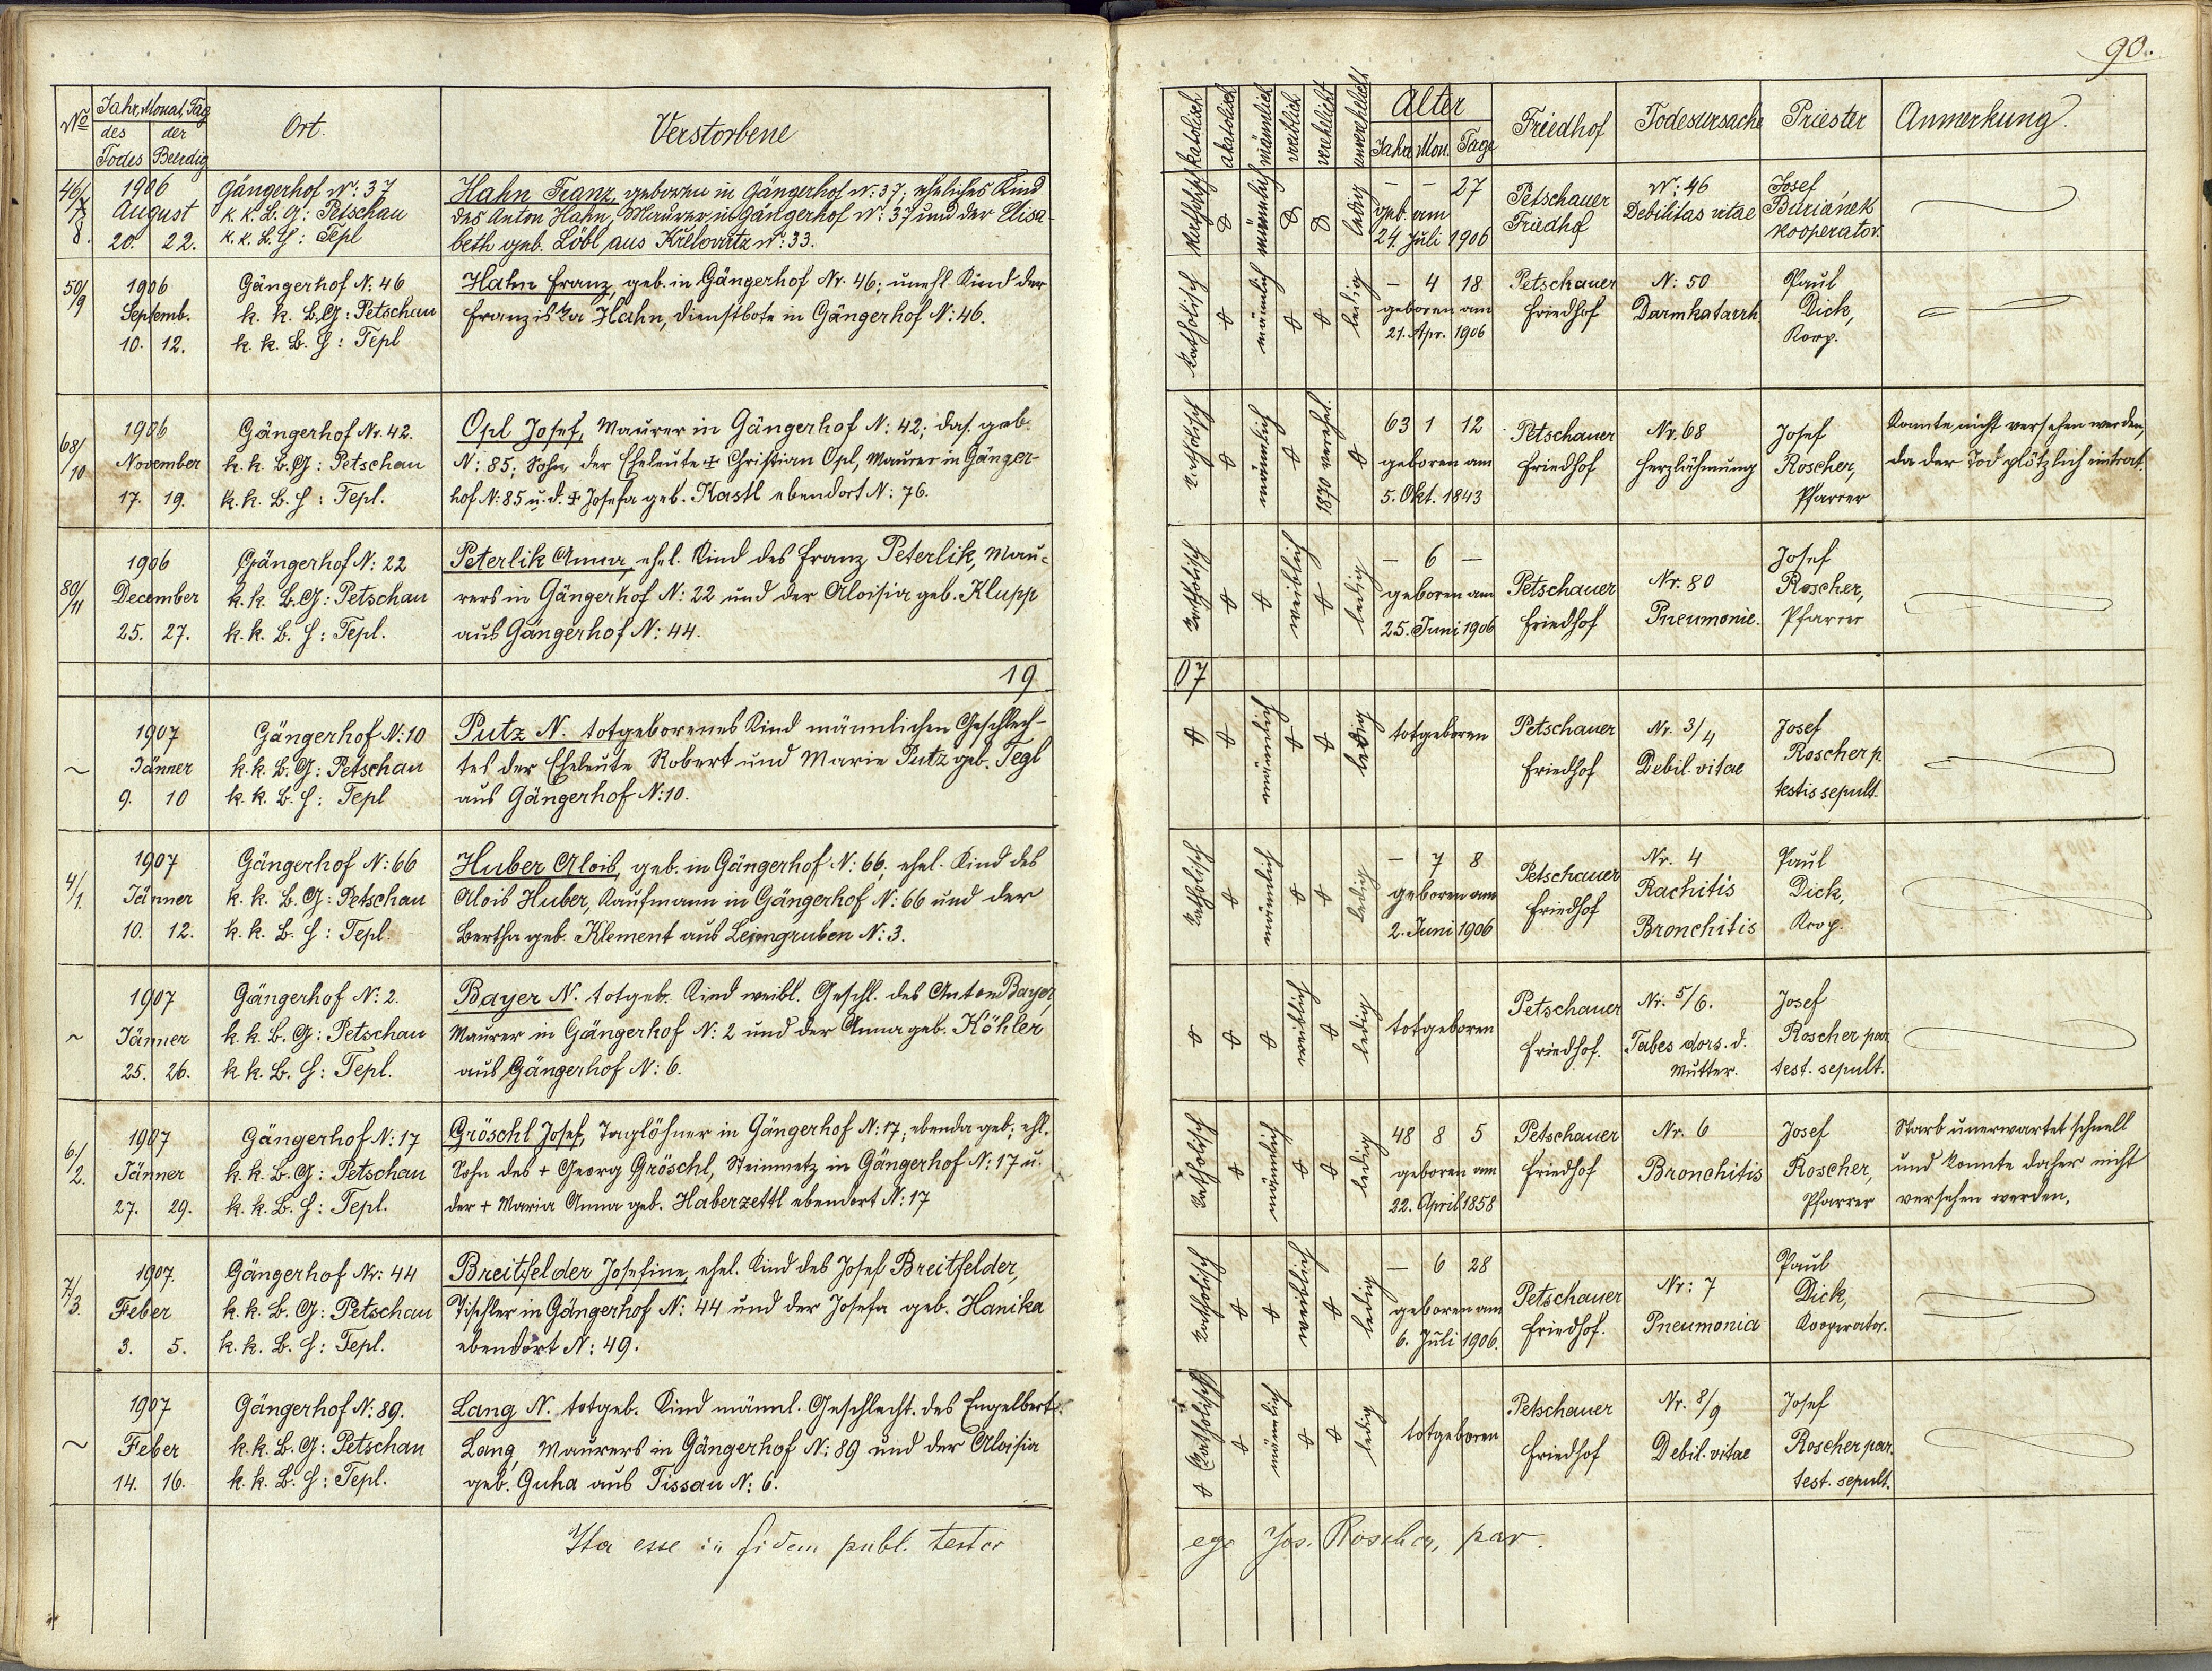 90.
No Jahr, Monat, Tag des Todes der Beerdig Ort. Verstorbene
katolisch akatolisch männlich weiblich verehlicht unverehelicht Alter Jahre Mon. Tage Friedhof Todesursache Priester Anmerkung.
46/8. 1906 August 20. 22.
Gängerhof No: 37
k. k. B. G: Petschau
k. k. B. H: Tepl
Hahn Franz, geboren in Gängerhof No: 37; eheliches Kind
des Anton Hahn, Maurer in Gängerhof No: 37 und der Elisa-
beth geb. Löbl aus No: 33.
katholisch männlich ledig
- - 27
geb. am
24. Juli 1906
Petschauer
Friedhof
No: 46
Debilitas vitae
Josef
Buriánek
Kooperator.
50/9 1906 Septemb. 10. 12.
Gängerhof N: 46
k. k. B. G: Petschau
k. k. B. H: Tepl
Hahn Franz, geb. in Gängerhof Nr. 46; unehl. Kind der
Franziska Hahn, Dienstbote in Gängerhof N: 46.
katholisch männlich ledig
- 4 18
geboren am
21. Apr. 1906
Petschauer
Friedhof
N: 50
Darmkatarrh
Paul
Dick,
Koop.
68/10 1906 November 17. 19.
Gängerhof Nr. 42.
k. k. B. G: Petschau
k. k. B. H: Tepl.
Opl Josef, Maurer in Gängerhof N: 42; das. geb.
N: 85; Sohn der Eheleute + Christian Opl, Maurer in Gänger-
hof N: 85 u. d. + Josefa geb. Kastl ebendort N: 76.
katholisch männlich 1870 verehel.
63 1 12
geboren am
5. Okt. 1843
Petschauer
Friedhof
Nr. 68
Herzlähmung
Josef
Roscher,
Pfarrer
Konnte nicht versehen werden,
da der Tod plötzlich eintrat.
80/11 1906 December 25. 27.
Gängerhof N: 22
k. k. B. G: Petschau
k. k. B. H: Tepl.
Peterlik Anna, ehel. Kind des Franz Peterlik, Mau-
rers in Gängerhof N: 22 und der Aloisia geb. Klupp
aus Gängerhof N: 44.
katholisch weiblich ledig
- 6 -
geboren am
25. Juni 1906
Petschauer
Friedhof
Nr. 80
Pneumonie.
Josef
Roscher,
Pfarrer
1907
~ 1907 Jänner 9. 10
Gängerhof N: 10
k. k. B. G: Petschau
k. k. B. H: Tepl
Putz N. totgeborenes Kind männlichen Geschlech-
tes der Eheleute Robert und Marie Putz geb. Tegl
aus Gängerhof N: 10.
männlich ledig
totgeboren
Petschauer
Friedhof
Nr. 3/4
Debil. vitae
Josef
Roscher p.
testis sepult.
4/1. 1907 Jänner 10. 12.
Gängerhof N: 66
k. k. B. G: Petschau
k. k. B. H: Tepl.
Huber Alois, geb. in Gängerhof N: 66; ehel. Kind des
Alois Huber, Kaufmann in Gängerhof N: 66 und der
Bertha geb. Klement aus Leimgruben N: 3.
katholisch männlich ledig
- 7 8
geboren am
2. Juni 1906
Petschauer
Friedhof
Nr. 4
Rachitis
Bronchitis
Paul
Dick,
Koop.
~ 1907 Jänner 25. 26.
Gängerhof N: 2.
k. k. B. G: Petschau
k. k. B. H: Tepl.
Bayer N. totgeb. Kind weibl. Geschl. des Anton Bayer,
Maurer in Gängerhof N: 2 und der Anna geb. Köhler
aus Gängerhof N: 6.
weiblich ledig
totgeboren
Petschauer
Friedhof.
Nr. 5/6.
Tabes dors. d.
Mutter.
Josef
Roscher par.
test. sepult.
6./2. 1907 Jänner 27. 29.
Gängerhof N: 17
k. k. B. G: Petschau
k. k. B. H: Tepl.
Gröschl Josef, Taglöhner in Gängerhof N: 17; ebenda geb; ehl.
Sohn des + Georg Gröschl, Steinmetz in Gängerhof N: 17 u.
der + Maria Anna geb. Haberzettl ebendort N: 17
katholisch männlich ledig
48 8 5
geboren am
22. April 1858
Petschauer
Friedhof
Nr. 6
Bronchitis
Josef
Roscher,
Pfarrer
Starb unerwartet schnell
und konnte daher nicht
versehen werden.
7/3. 1907. Feber 3. 5.
Gängerhof Nr: 44
k. k. B. G: Petschau
k. k. B. H: Tepl.
Breitfelder Josefine, ehel. Kind des Josef Breitfelder,
Tischler in Gängerhof N: 44 und der Josefa geb. Hanika
ebendort N: 49.
katholisch weiblich ledig
- 6 28
geboren am
6. Juli 1906.
Petschauer
Friedhof.
Nr: 7
Pneumonia
Paul
Dick,
Kooperator.
~ 1907 Feber 14. 16.
Gängerhof N: 89.
k. k. B. G: Petschau
k. k. B. H: Tepl.
Lang N. totgeb. Kind männl. Geschlecht. des Engelbert
Lang, Maurers in Gängerhof N: 89 und der Aloisia
geb. Guha aus Tissau N: 6.
katholisch männlich ledig
totgeboren
Petschauer
Friedhof
Nr. 8/9
Debil. vitae
Josef
Roscher par.
test. sepult.
Ita esse in fidem publ. testor ego Jos. Roscher, par.